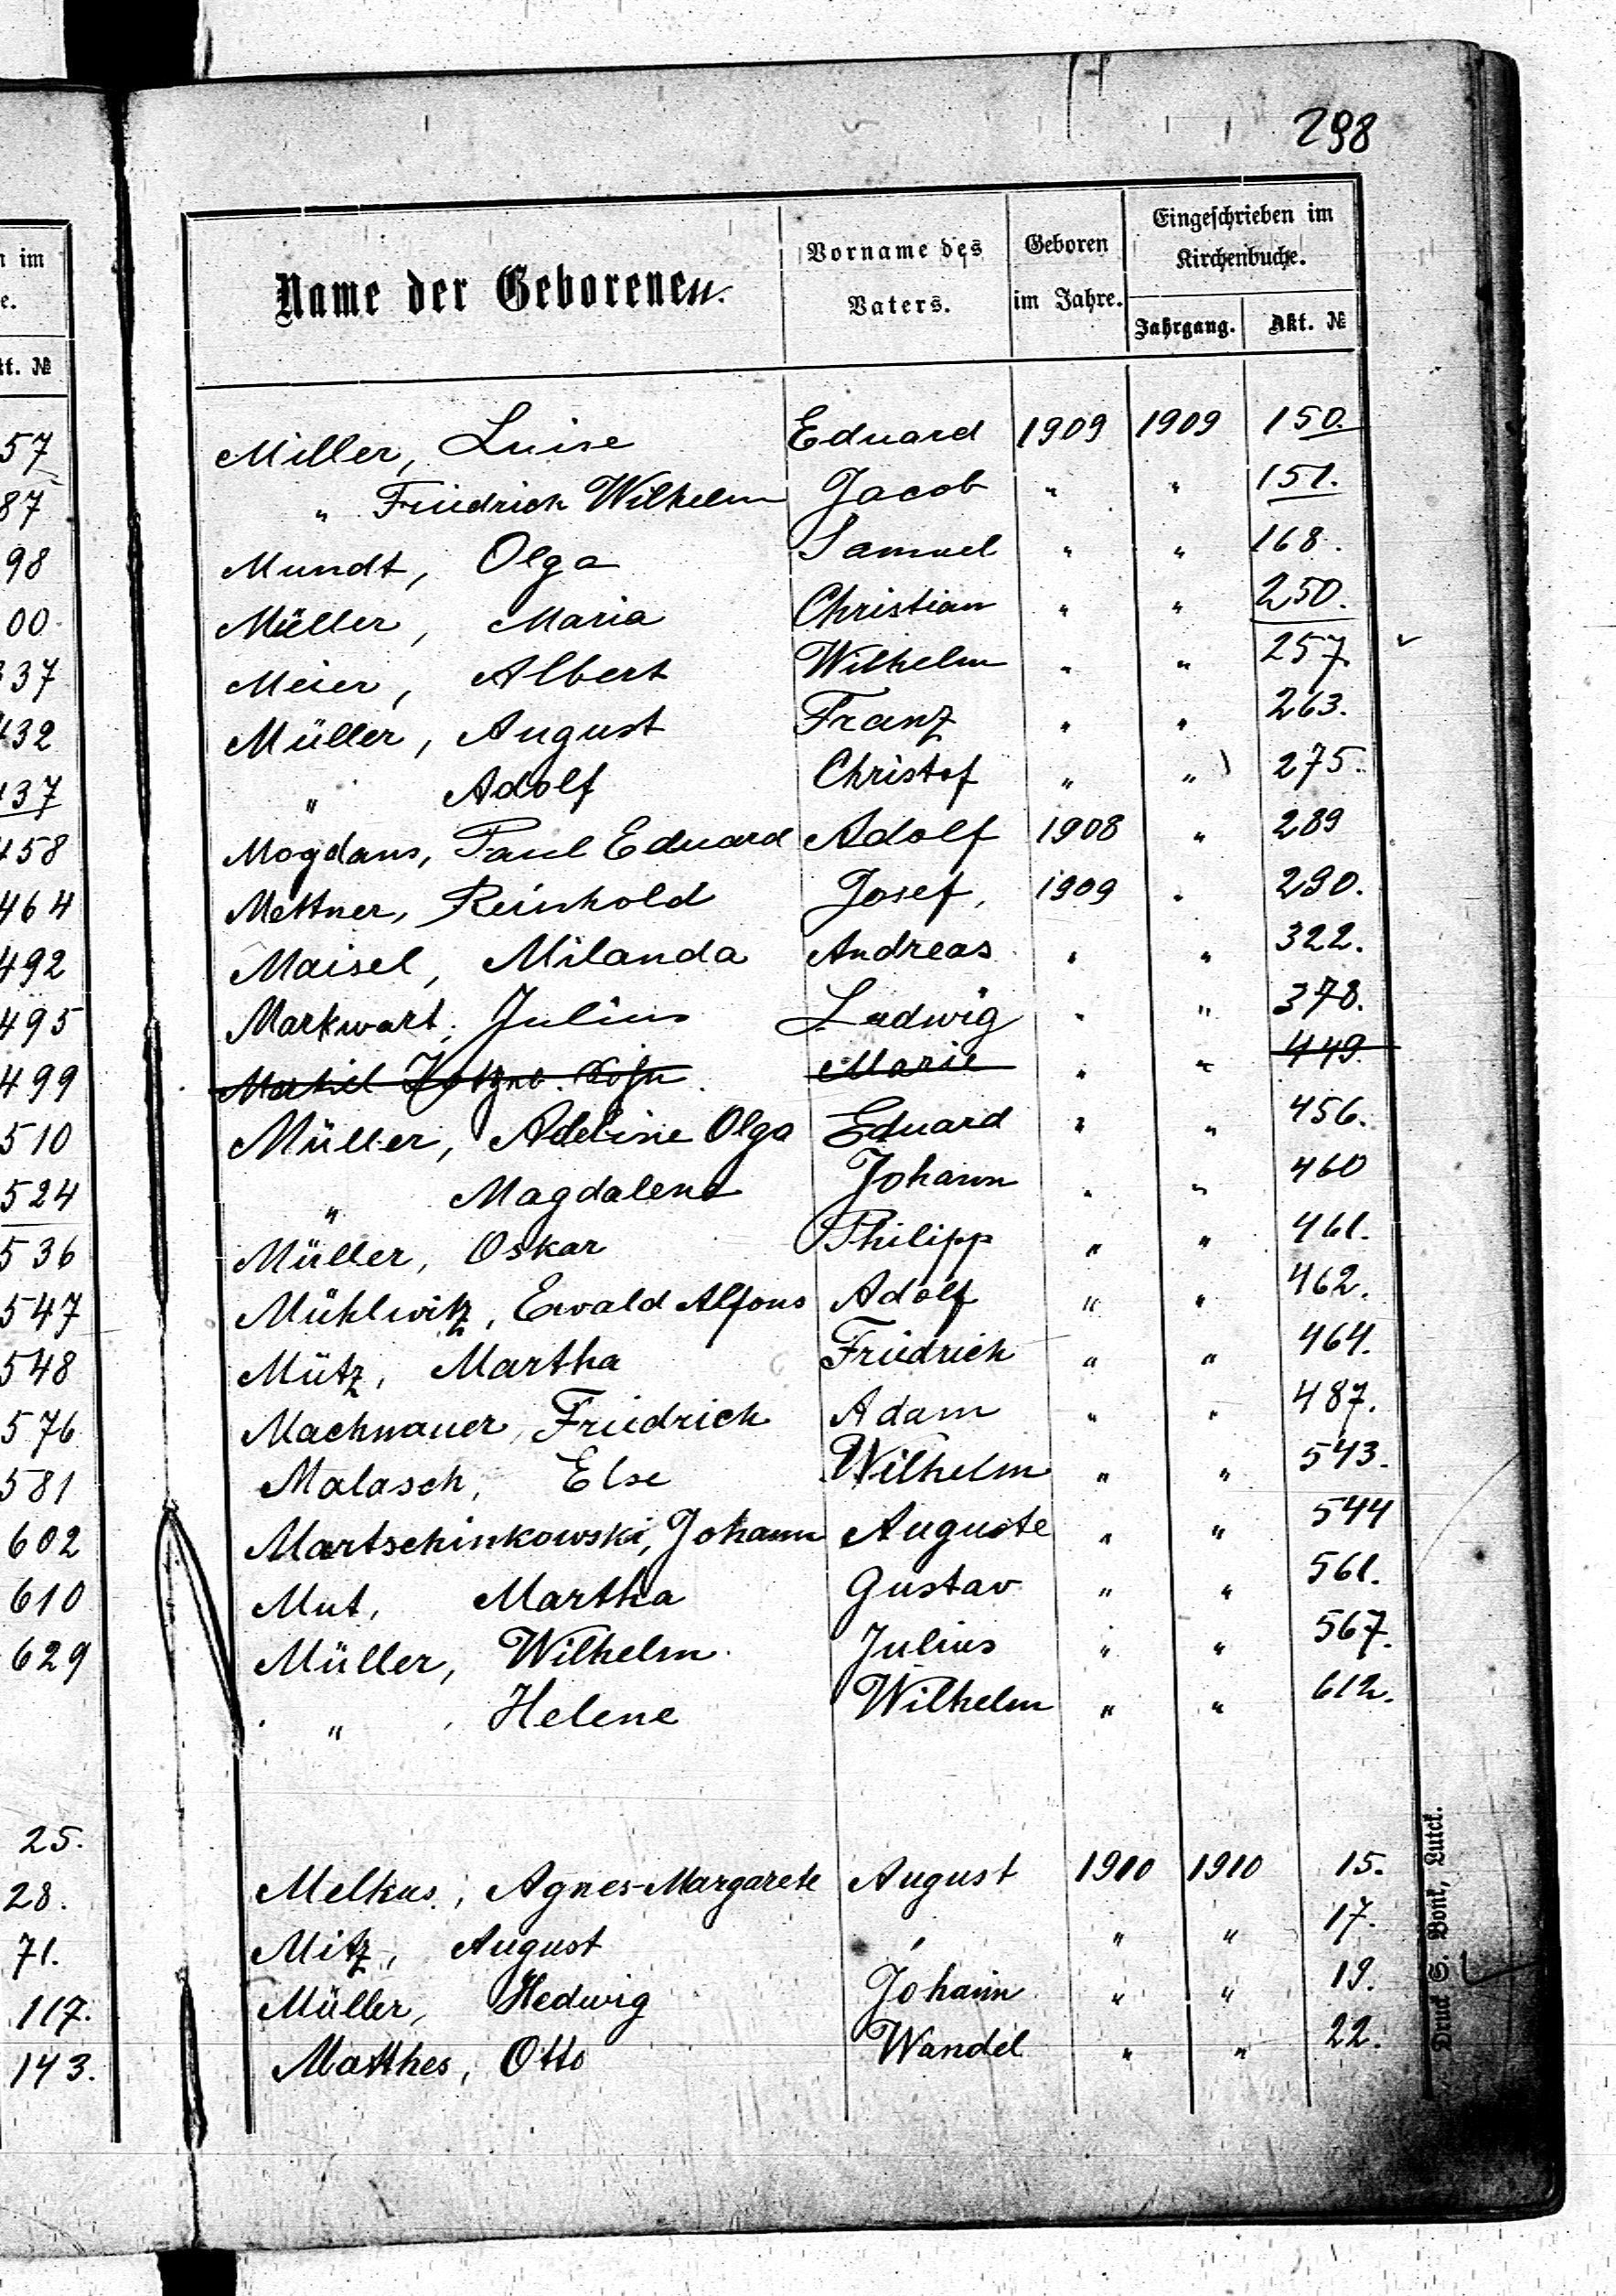 n im
e.
kt. №
57
87
98
00
337
432
437
458
464
492
495
499
510
524
536
547
548
576
581
602
610
629
25.
28.
71.
117.
143.
298
Name der Geborenen.
Vorname des Vaters.
Geboren im Jahre.
Eingeschrieben im Kirchenbuche.
Jahrgang. Akt. №
Miller, Luise Eduard 1909 1909 150.
" Friedrich Wilhelm Jacob " " 151.
Mundt, Olga Samuel " " 168.
Müller, Maria Christian " " 250.
Meier, Albert Wilhelm " " 257.
Müller, August Franz " " 263.
" Adolf Christof " " 275.
Mogdans, Paul Eduard Adolf 1908 " 289
Mettner, Reinhold Josef, 1909 " 290.
Maisel, Milanda Andreas " " 322.
Markwart, Julius Ludwig " " 378.
Marie " " 449.
Müller, Adeline Olga Eduard " " 456.
" Magdalena Johann " " 460
Müller, Oskar Philipp " " 461.
Mühlwitz, Ewald Alfons Adolf " " 462.
Mütz, Martha Friedrich " " 464.
Machnauer, Friedrich Adam " " 487.
Malasch, Else Wilhelm " " 543.
Martschinkowski, Johann Auguste " " 544
Mut, Martha Gustav " " 561.
Müller, Wilhelm Julius " " 567.
" Helene Wilhelm " " 612.
Melkus, Agnes-Margarete August 1910 1910 15.
Mitz, August " " " 17.
Müller, Hedwig Johann " " 19.
Matthes, Otto Wandel " " 22.
Druck S. Bonk, Lutzk.